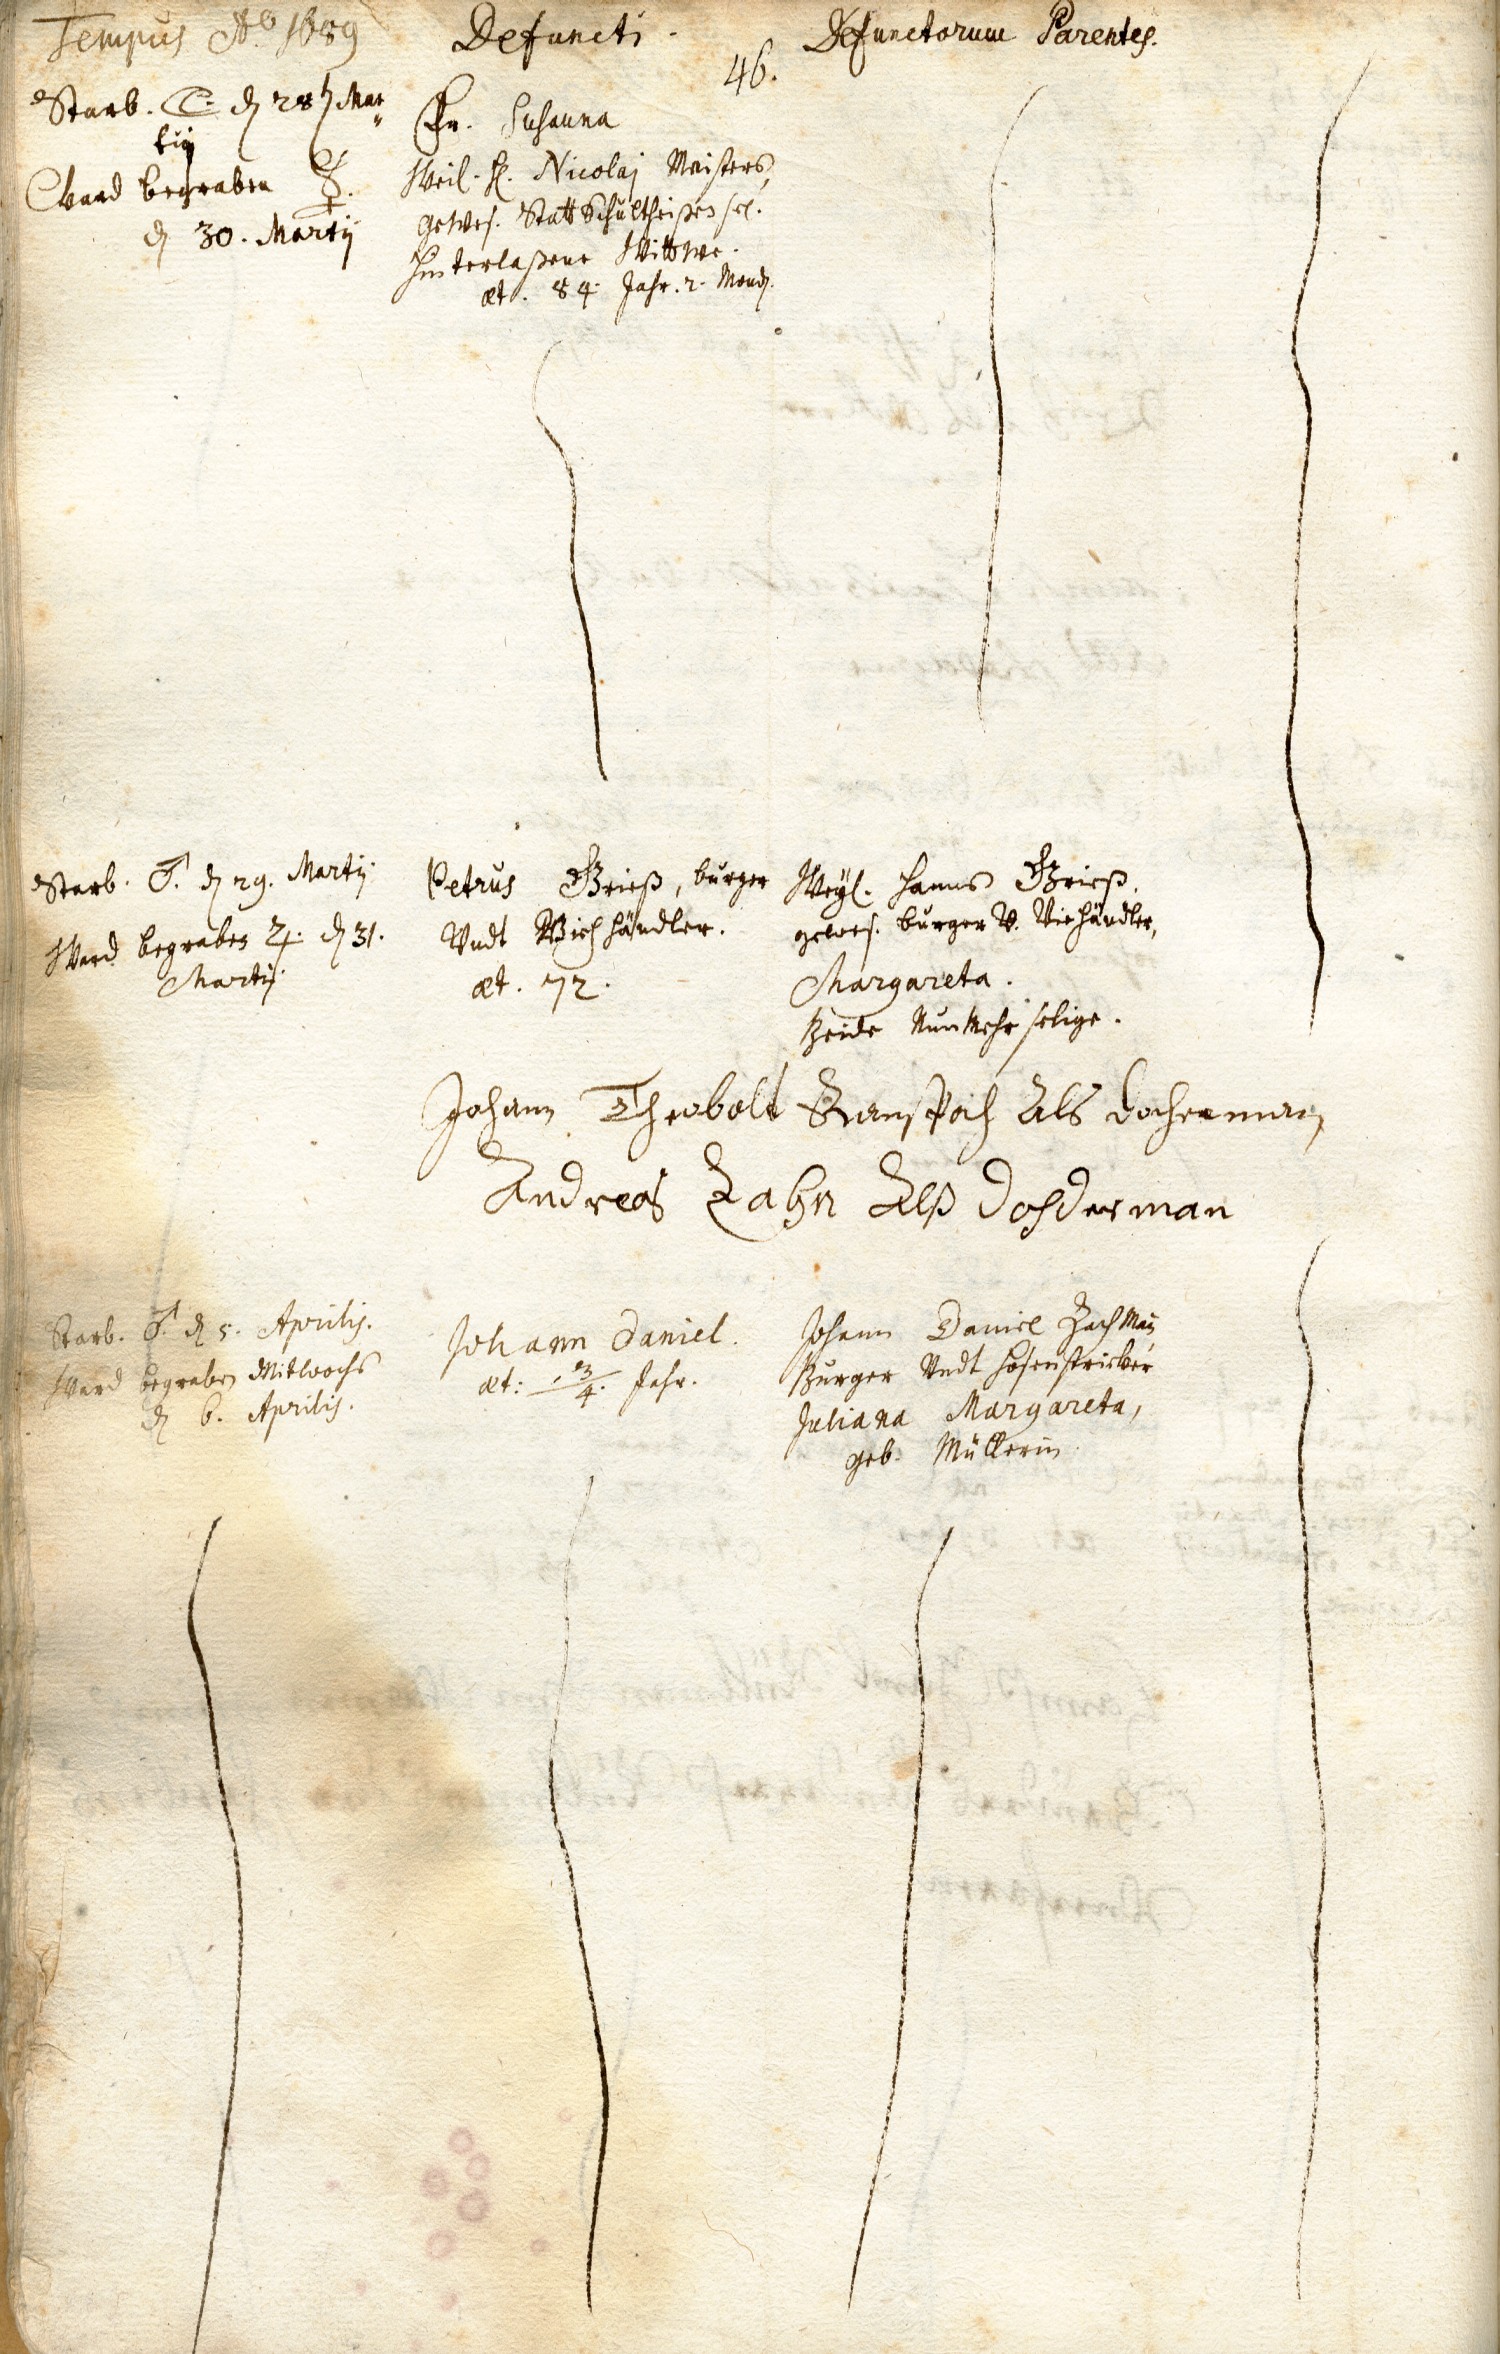 Tempus Aº. 1689
Defuncti.
Defunctorum Parentes.
46.
Starb. C. d 28 Mar
tij
Ward begraben ☿.
d 30. Martij
Fr. Susanna
Weil. H. Nicolaj Meisters,
gewes. Statt Schultheißen sel.
Hinterlaßene Wittwe.
æt. 84. Jahr. 2. Mond.
Starb. ♂. d 29. Martij
Ward begraben ♃. d 31.
Martij.
Petrus Grieß, burger
Undt Viehhändler.
æt. 72.
Weyl. Hanns Grieß,
gewes. burger V. Viehändler,
Margareta.
Beide Nun Mehr selige.
Johann Theobalt Ranspach Als dochermann
Andreas Zahn Alß dochderman
Starb. ♂. d 5. Aprilis.
Ward begraben Mitwochs
d 6. Aprilis.
Johann Daniel.
æt: 3/4. Jahr.
Johann Daniel Bachman
Burger Undt Hosenstricker
Juliana Margareta,
geb. Müllerin.